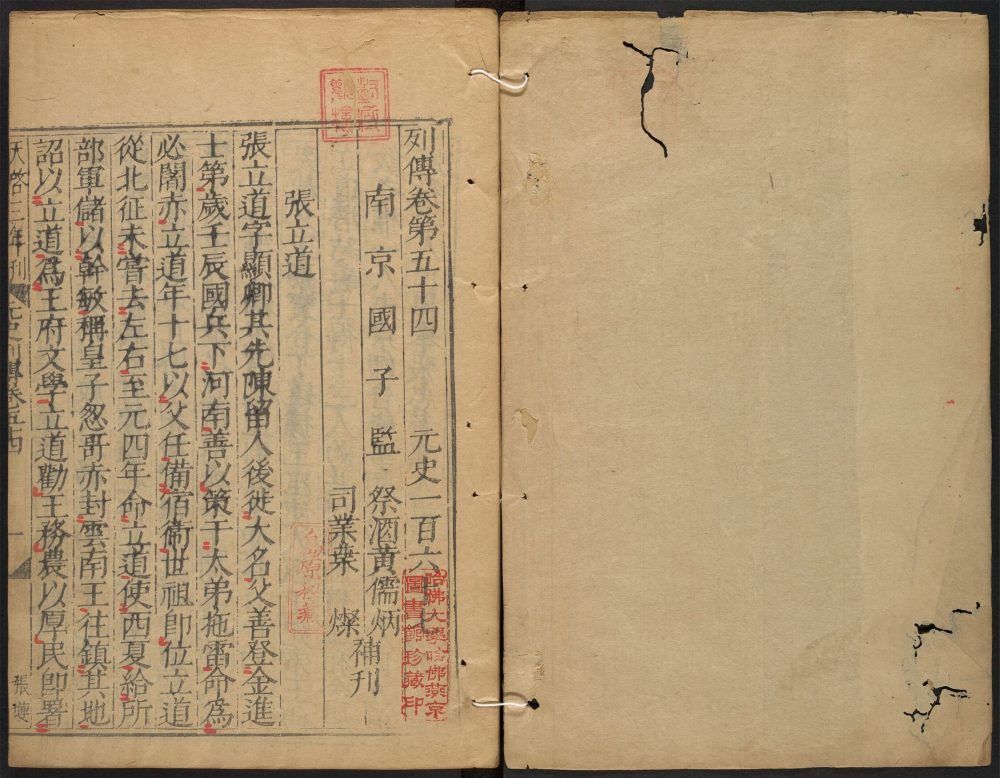 列傳卷第五十四 元史一百六十七
南京國子監 祭酒黃儒炳
司業葉燦 補刊
張立道
張立道字顯卿其先陳留人後徙大名父善登金進
士第歲壬辰國兵下河南善以策干太弟拖雷命爲
必闍赤立道年十七以父任備宿衞世祖卽位立道
從北征未嘗去左右至元四年命立道使西夏給所
部軍儲以幹敏稱皇子忽哥赤封雲南王往鎮其地
詔以立道爲王府文學立道勸王務農以厚民卽署
天啓三年刊 元史列傳卷五十四 一
張蓮
哈佛大學哈佛燕京
圖書館珍藏印